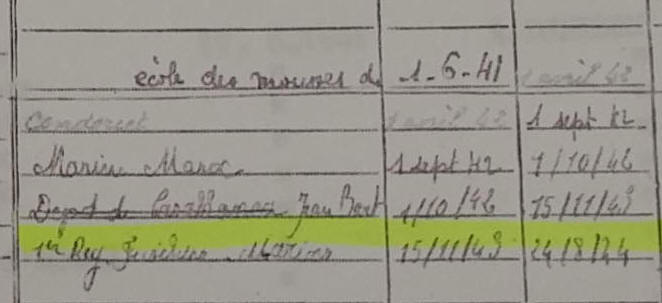 école des mousses d 1-6-41 1 avril 42
Condorcet 1 avril 42 1 sept 42
Marine Maroc 1 sept 42 1/10/42
Depot de Casablanca Jean Bart 1/10/42 15/11/43
1er Reg Fusiliers Marins 15/11/43 24/8/44